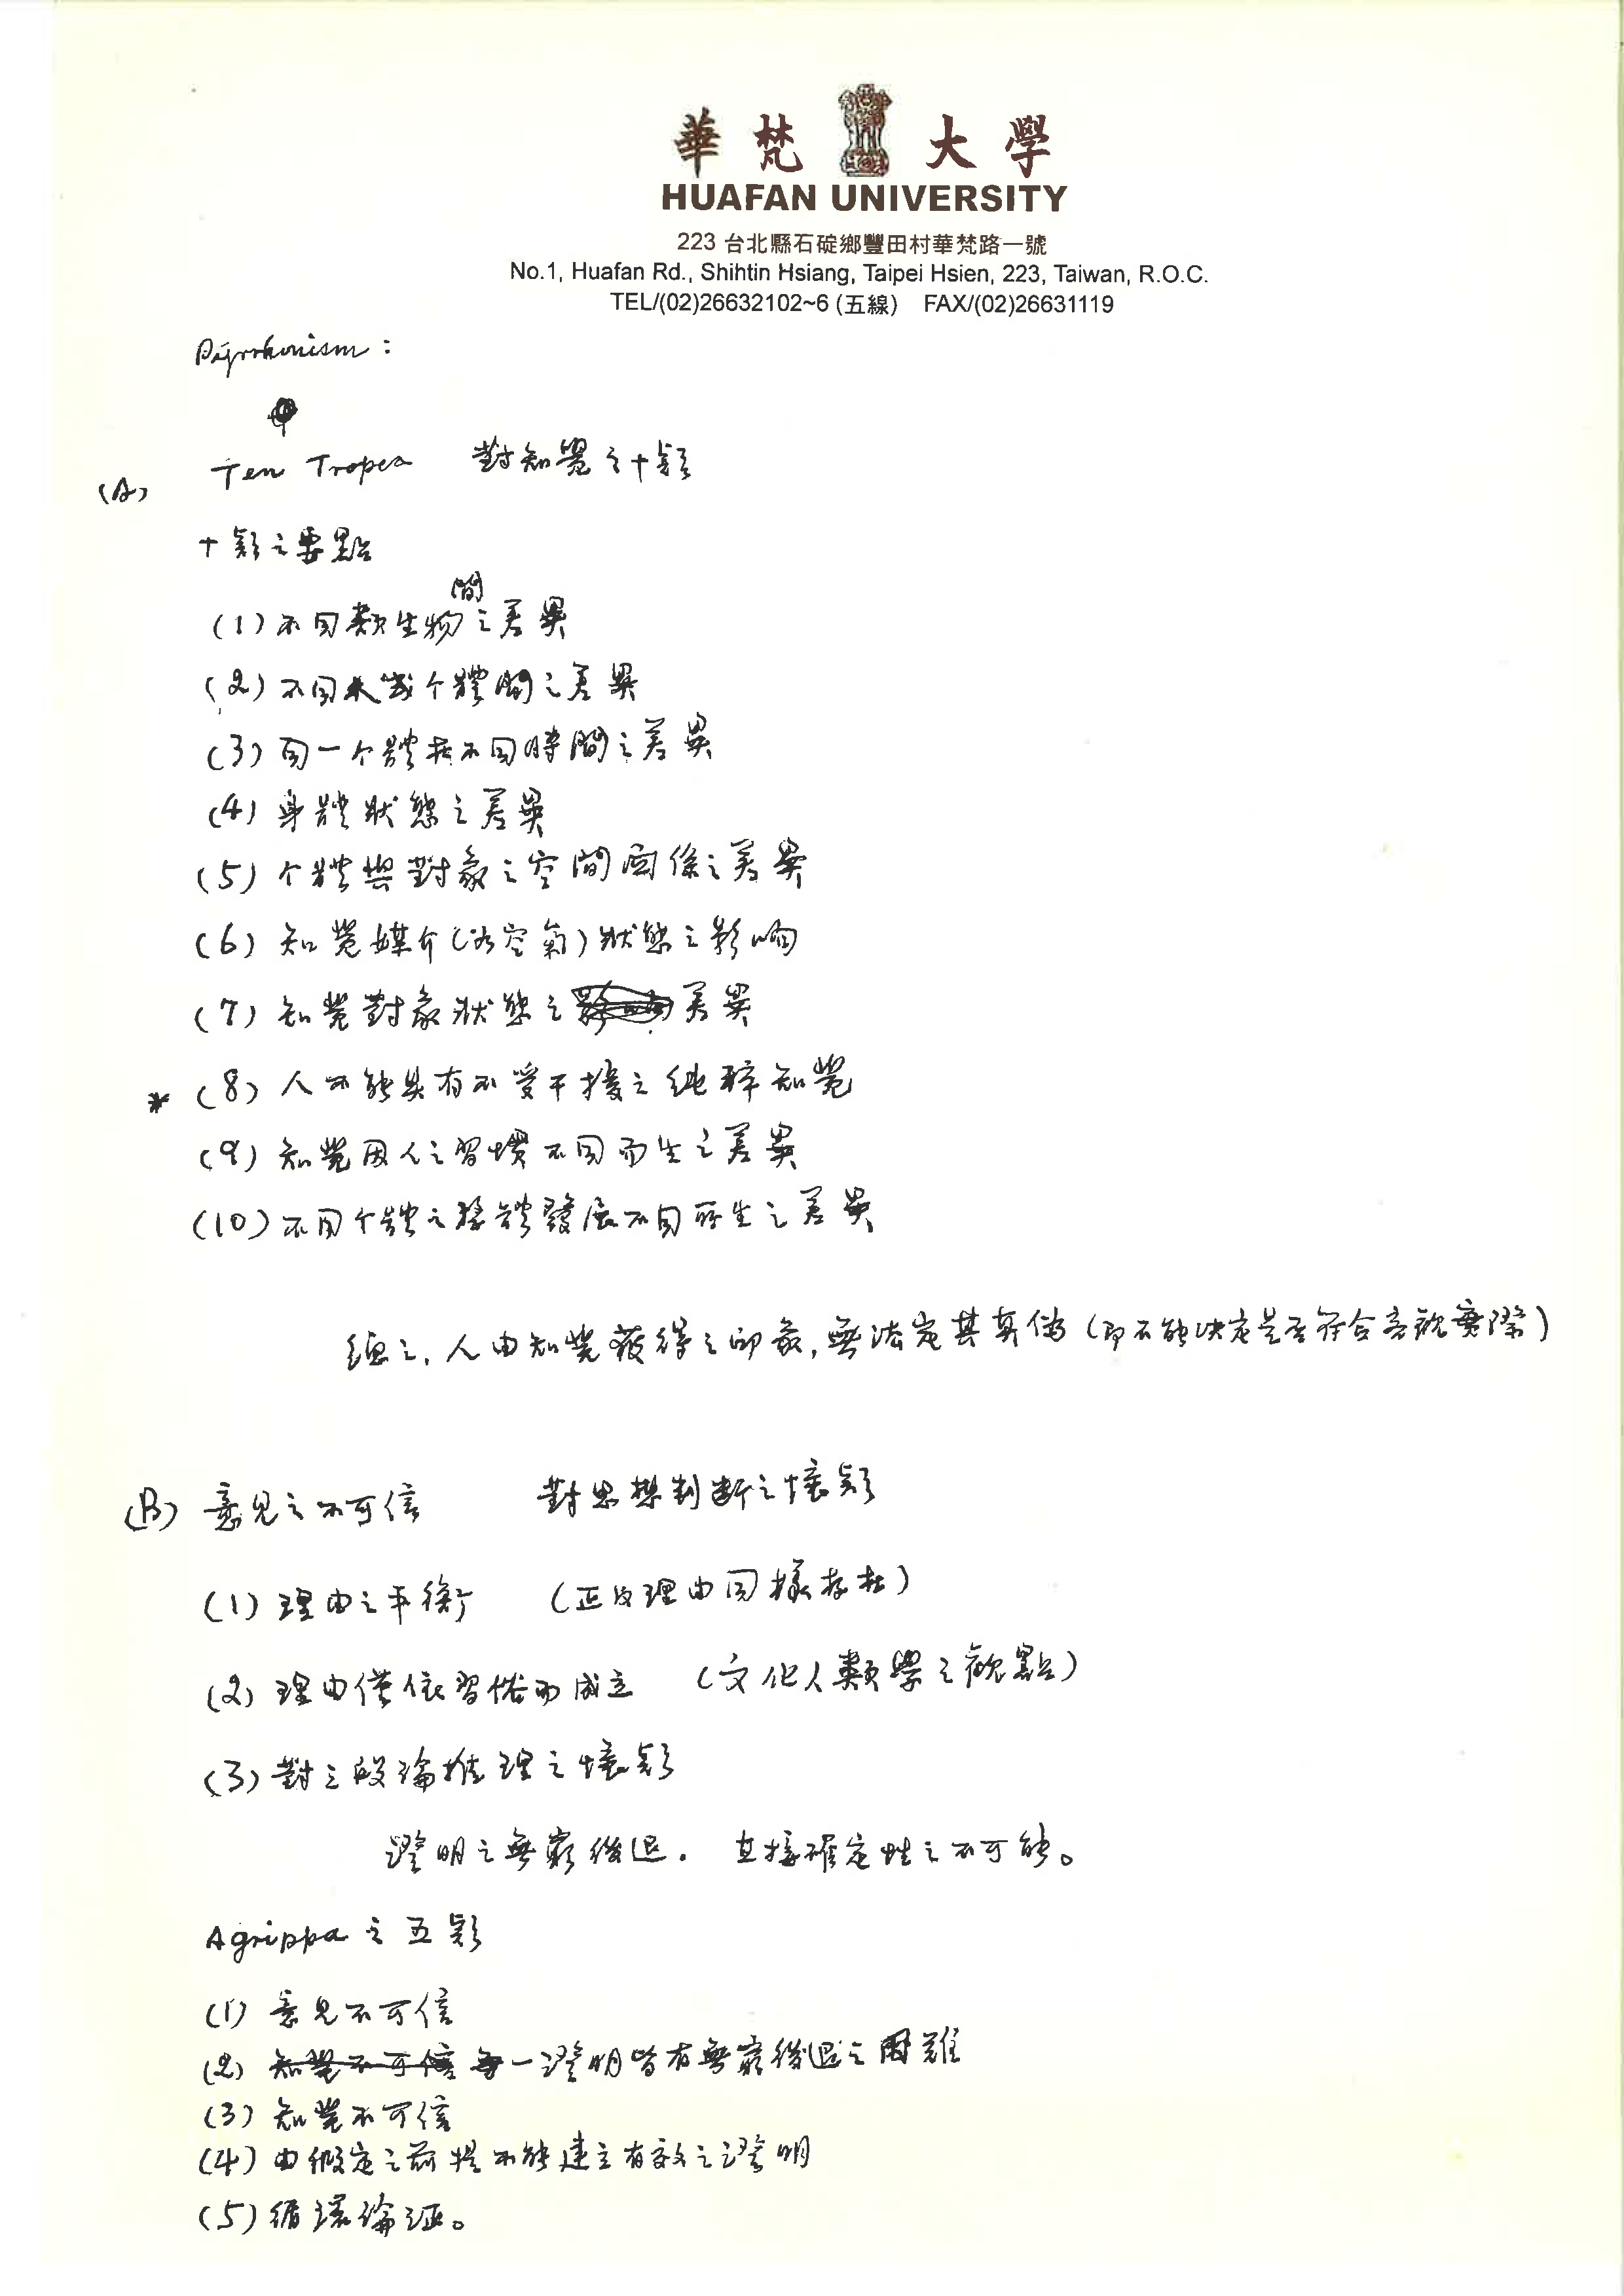 華梵大學
HUAFAN UNIVERSITY
223 台北縣石碇鄉豐田村華梵路一號
No.1, Huafan Rd., Shihtin Hsiang, Taipei Hsien, 223, Taiwan, R.O.C.
TEL/(02)26632102~6 (五線) FAX/(02)26631119
Pyrrhonism :
(A) Ten Tropes 對知覺之十疑
十疑之要點
(1) 不同類生物間之差異
(2) 不同个體間之差異
(3) 同一个體在不同時間之差異
(4) 身體狀態之差異
(5) 个體與對象之空間関係之差異
(6) 知覺媒介(如空氣)狀態之影响
(7) 知覺對象狀態之差異
* (8) 人不能具有不受干擾之純粹知覺
(9) 知覺因人之習慣不同而生之差異
(10) 不同个體之整體發展不同所生之差異
總之, 人由知覺獲得之印象, 無法定其真偽 (即不能決定是否符合客觀實際)
(B) 意見之不可信 對思想判斷之懷疑
(1) 理由之平衡 (正反理由同樣存在)
(2) 理由僅依習俗而成立 (文化人類學之觀點)
(3) 對三段論推理之懷疑
證明之無窮後退. 直接確定性之不可能。
Agrippa 之五疑
(1) 意見不可信
(2) 知覺不可信 每一證明皆有無窮後退之困難
(3) 知覺不可信
(4) 由假定之前提不能建立有效之證明
(5) 循環論証。